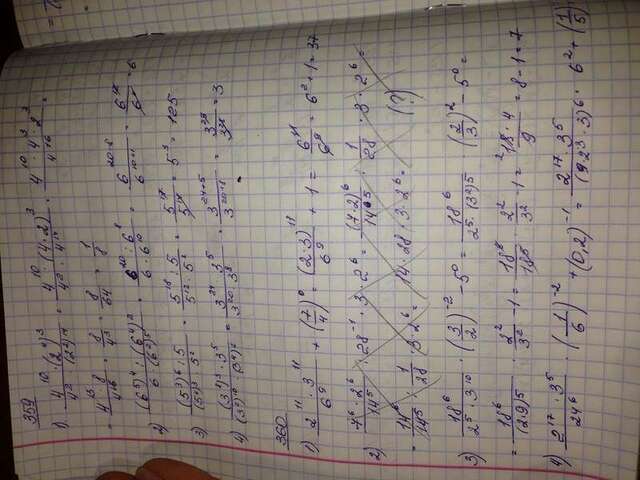 359
1) 4^10 · (2^4)^3 / 4^2 · (2^2)^14 = 4^10 · (4·2)^3 / 4^2 · 4^14 = 4^10 · 4^3 · 2^3 / 4^16 =
= 4^13 · 8 / 4^16 = 8 / 4^3 = 8 / 64 = 1 / 8
2) (6^5)^4 : (6^4)^2 / 6 · (6^2)^5 = 6^20 : 6^8 / 6 · 6^10 = 6^20-8 / 6^10+1 = 6^12 / 6^11 = 6
3) (5^3)^6 : 5 / (5^4)^3 · 5^2 = 5^18 : 5 / 5^12 · 5^2 = 5^17 / 5^14 = 5^3 = 125
4) (3^8)^3 · 3^5 / (3^2)^10 · (3^4)^2 = 3^24 · 3^5 / 3^20 · 3^8 = 3^24+5 / 3^20+8 = 3^29 / 3^28 = 3
360
1) 2^11 · 3^11 / 6^9 + (7/4)^0 = (2·3)^11 / 6^9 + 1 = 6^11 / 6^9 = 6^2 + 1 = 37
2) 7^6 · 2^6 / 14^5 · 28^-1 · 3 · 2^6 = (7·2)^6 / 14^5 · 1/28 · 3 · 2^6 =
= 14^6 / 14^5 · 1/28 · 3 · 2^6 = 14 · 28 · 3 · 2^6 = (?)
3) 18^6 / 2^5 · 3^10 · (3/2)^-2 - 5^0 = 18^6 / 2^5 · (3^2)^5 · (2/3)^2 - 5^0 =
= 18^6 / (2·9)^5 · 2^2 / 3^2 - 1 = 18^6 / 18^5 · 2^2 / 3^2 - 1 = 18 · 4 / 9 = 8 - 1 = 7
4) 2^17 · 3^5 / 24^6 · (1/6)^-2 + (0,2)^-1 = 2^17 · 3^5 / (2^3 · 3)^6 · 6^2 + (1/5)